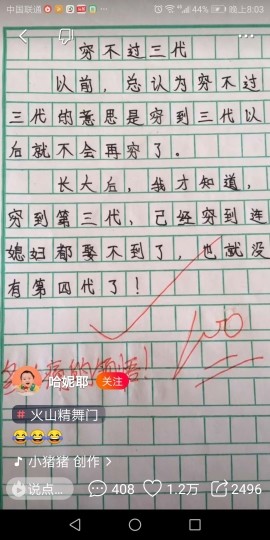 中国联通
44% 晚上8:03
穷不过三代
以前，总认为穷不过
三代的意思是穷到三代以
后就不会再穷了。
长大后，我才知道，
穷到第三代，己经穷到连
媳妇都娶不到了，也就没
有第四代了！
100
哈妮耶
关注
# 火山精舞门
😂😂😂
小猪猪 创作 >
说点...
408
1.2万
2496